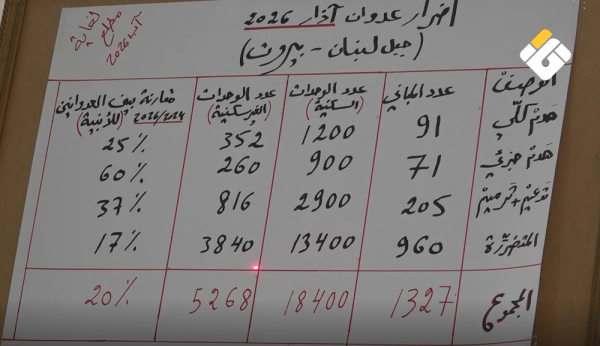 اضرار عدوان آذار 2026
(جبل لبنان - بيروت)
لغاية
مطلع
آب 2026
التوصيف	عدد المباني	عدد الوحدات (السكنية)	عدد الوحدات (الغيرسكنية)	مقارنة بين العدوانين 2026/2024 (للأبنية)
هدم كلّي	91	1200	352	25%
هدم جزئي	71	900	260	60%
تدعيم+ترميم	205	2900	816	37%
المتضررة	960	13400	3840	17%
المجموع	1327	18400	5268	20%